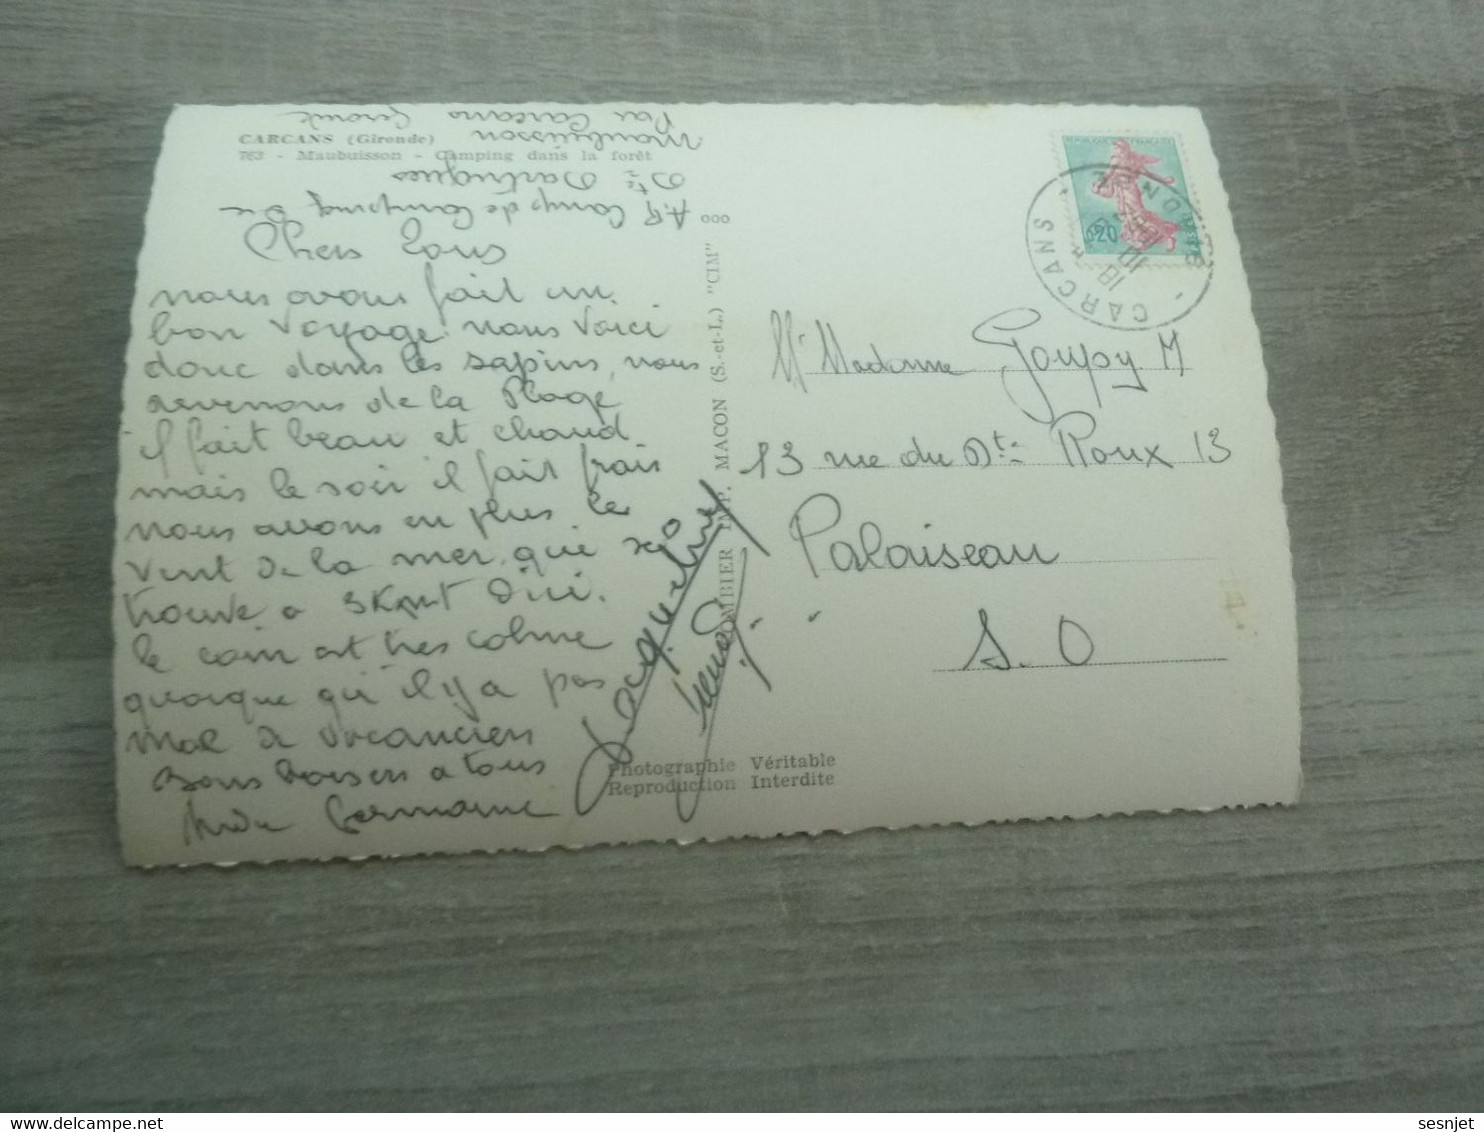 CARCANS (Gironde)
763 - Maubuisson - Camping dans la forêt
A.R Camp de Camping
Dte Dartrigues
Maubuisson
Par Carcans Gironde
Chers tous
nous avons fait un
bon Voyage nous voici
donc dans les sapins, nous
revenons de la Plage
il fait beau et chaud
mais le soir il fait frais
nous avons en plus le
vent de la mer qui se
trouve a 3 Km d'ici.
le coin est tres calme
quoique qu'il y a pas
mal de vacanciers
Bons baisers a tous
Germaine
Jacqueline
COMBIER IMP. MACON (S.-et-L.) "CIM"
ooo
Photographie Véritable
Reproduction Interdite
CARCANS
GIRONDE
18 H
0,20
Mr Madame Goupy M
13 rue du Dte Roux 13
Palaiseau
S. O
sesnjet